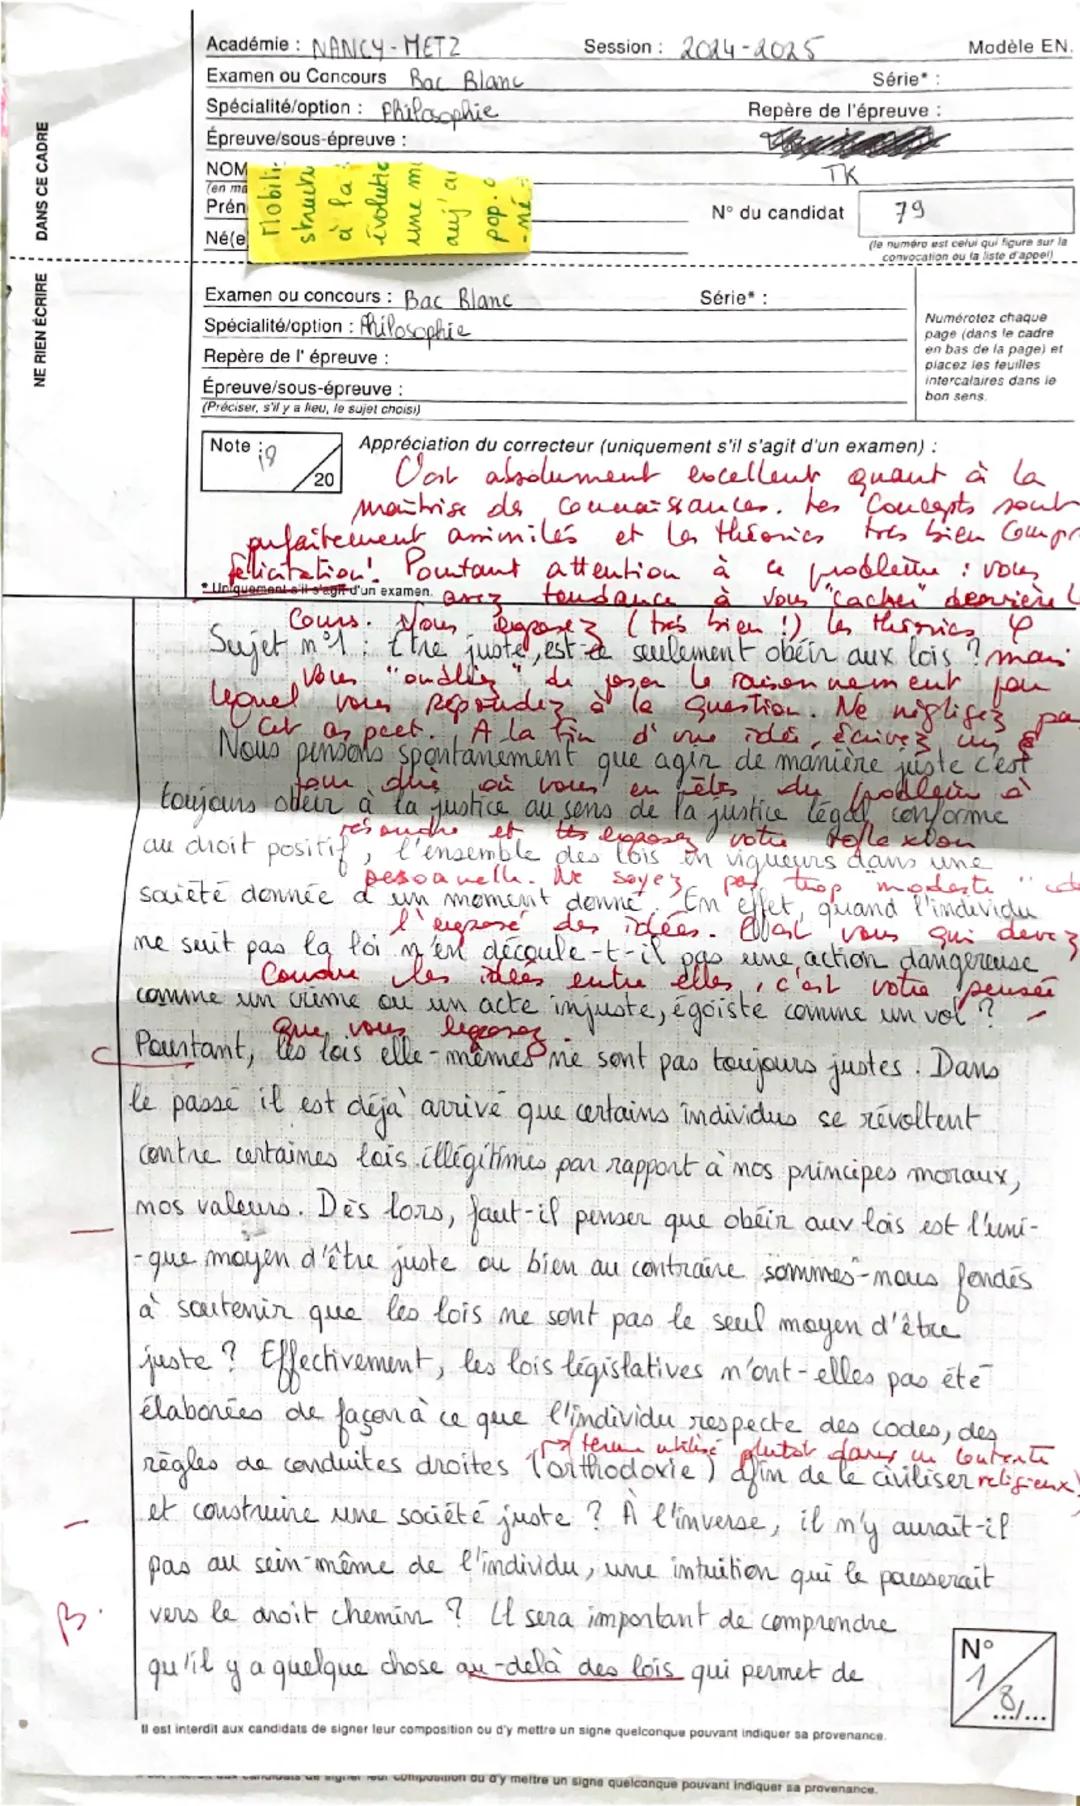 Académie : NANCY-METZ Session : 2024-2025 Modèle EN.
Examen ou Concours Bac Blanc Série* :
Spécialité/option : Philosophie Repère de l'épreuve :
Épreuve/sous-épreuve :
NOM TK
(en ma
Prén N° du candidat 79
Né(e (le numéro est celui qui figure sur la convocation ou la liste d'appel)
Mobili
structu
à la
évolutio
une m
auj' a
pop.
-né
DANS CE CADRE
NE RIEN ÉCRIRE
Examen ou concours : Bac Blanc Série* :
Spécialité/option : Philosophie
Repère de l' épreuve :
Épreuve/sous-épreuve :
(Préciser, s'il y a lieu, le sujet choisi)
Numérotez chaque
page (dans le cadre
en bas de la page) et
placez les feuilles
intercalaires dans le
bon sens.
Note : 19 /20
Appréciation du correcteur (uniquement s'il s'agit d'un examen) :
C'est absolument excellent quant à la
maîtrise des connaissances. Les concepts sont
parfaitement assimilés et les théories très bien compr
félicitation! Pourtant attention à ce problème : vous
* Uniquement s'il s'agit d'un examen.
avez tendance à vous "cacher" derrière l
Cours. Vous exposez (très bien !) les théories φ
Sujet n°1 : Être juste, est-ce seulement obéir aux lois ?
mais
vous "oubliez" de poser le raisonnement par
lequel vous répondez à la question. Ne négligez pa
cet aspect. A la fin d'une idée, écrivez un §
Nous pensons spontanément que agir de manière juste c'est
où vous en êtes du problème à
toujours obéir à la justice au sens de la justice légal, conforme
résoudre et exposez votre réflexion
au droit positif, l'ensemble des lois en vigueurs dans une
personnelle. Ne soyez pas trop "modeste"
société donnée à un moment donné. En effet, quand l'individu
l'exposé des idées. C'est vous qui devez
ne suit pas la loi n'en découle-t-il pas une action dangereuse
Coudre les idées entre elles, c'est votre pensée
comme un crime ou un acte injuste, égoïste comme un vol ?
que vous exposez
Pourtant, les lois elle-mêmes ne sont pas toujours justes. Dans
le passé il est déjà arrivé que certains individus se révoltent
contre certaines lois illégitimes par rapport à nos principes moraux,
nos valeurs. Dès lors, faut-il penser que obéir aux lois est l'uni-
-que moyen d'être juste ou bien au contraire sommes-nous fondés
à soutenir que les lois ne sont pas le seul moyen d'être
juste ? Effectivement, les lois législatives n'ont-elles pas été
élaborées de façon à ce que l'individu respecte des codes, des
→ terme utilisé plutôt dans un contexte
règles de conduites droites (orthodoxie) afin de le civiliser
religieux)
et construire une société juste ? À l'inverse, il n'y aurait-il
pas au sein-même de l'individu, une intuition qui le pousserait
B.
vers le droit chemin ? Il sera important de comprendre
qu'il y a quelque chose au-delà des lois qui permet de
N°
1/8
.../...
Il est interdit aux candidats de signer leur composition ou d'y mettre un signe quelconque pouvant indiquer sa provenance.
composition ou d'y mettre un signe quelconque pouvant indiquer sa provenance.